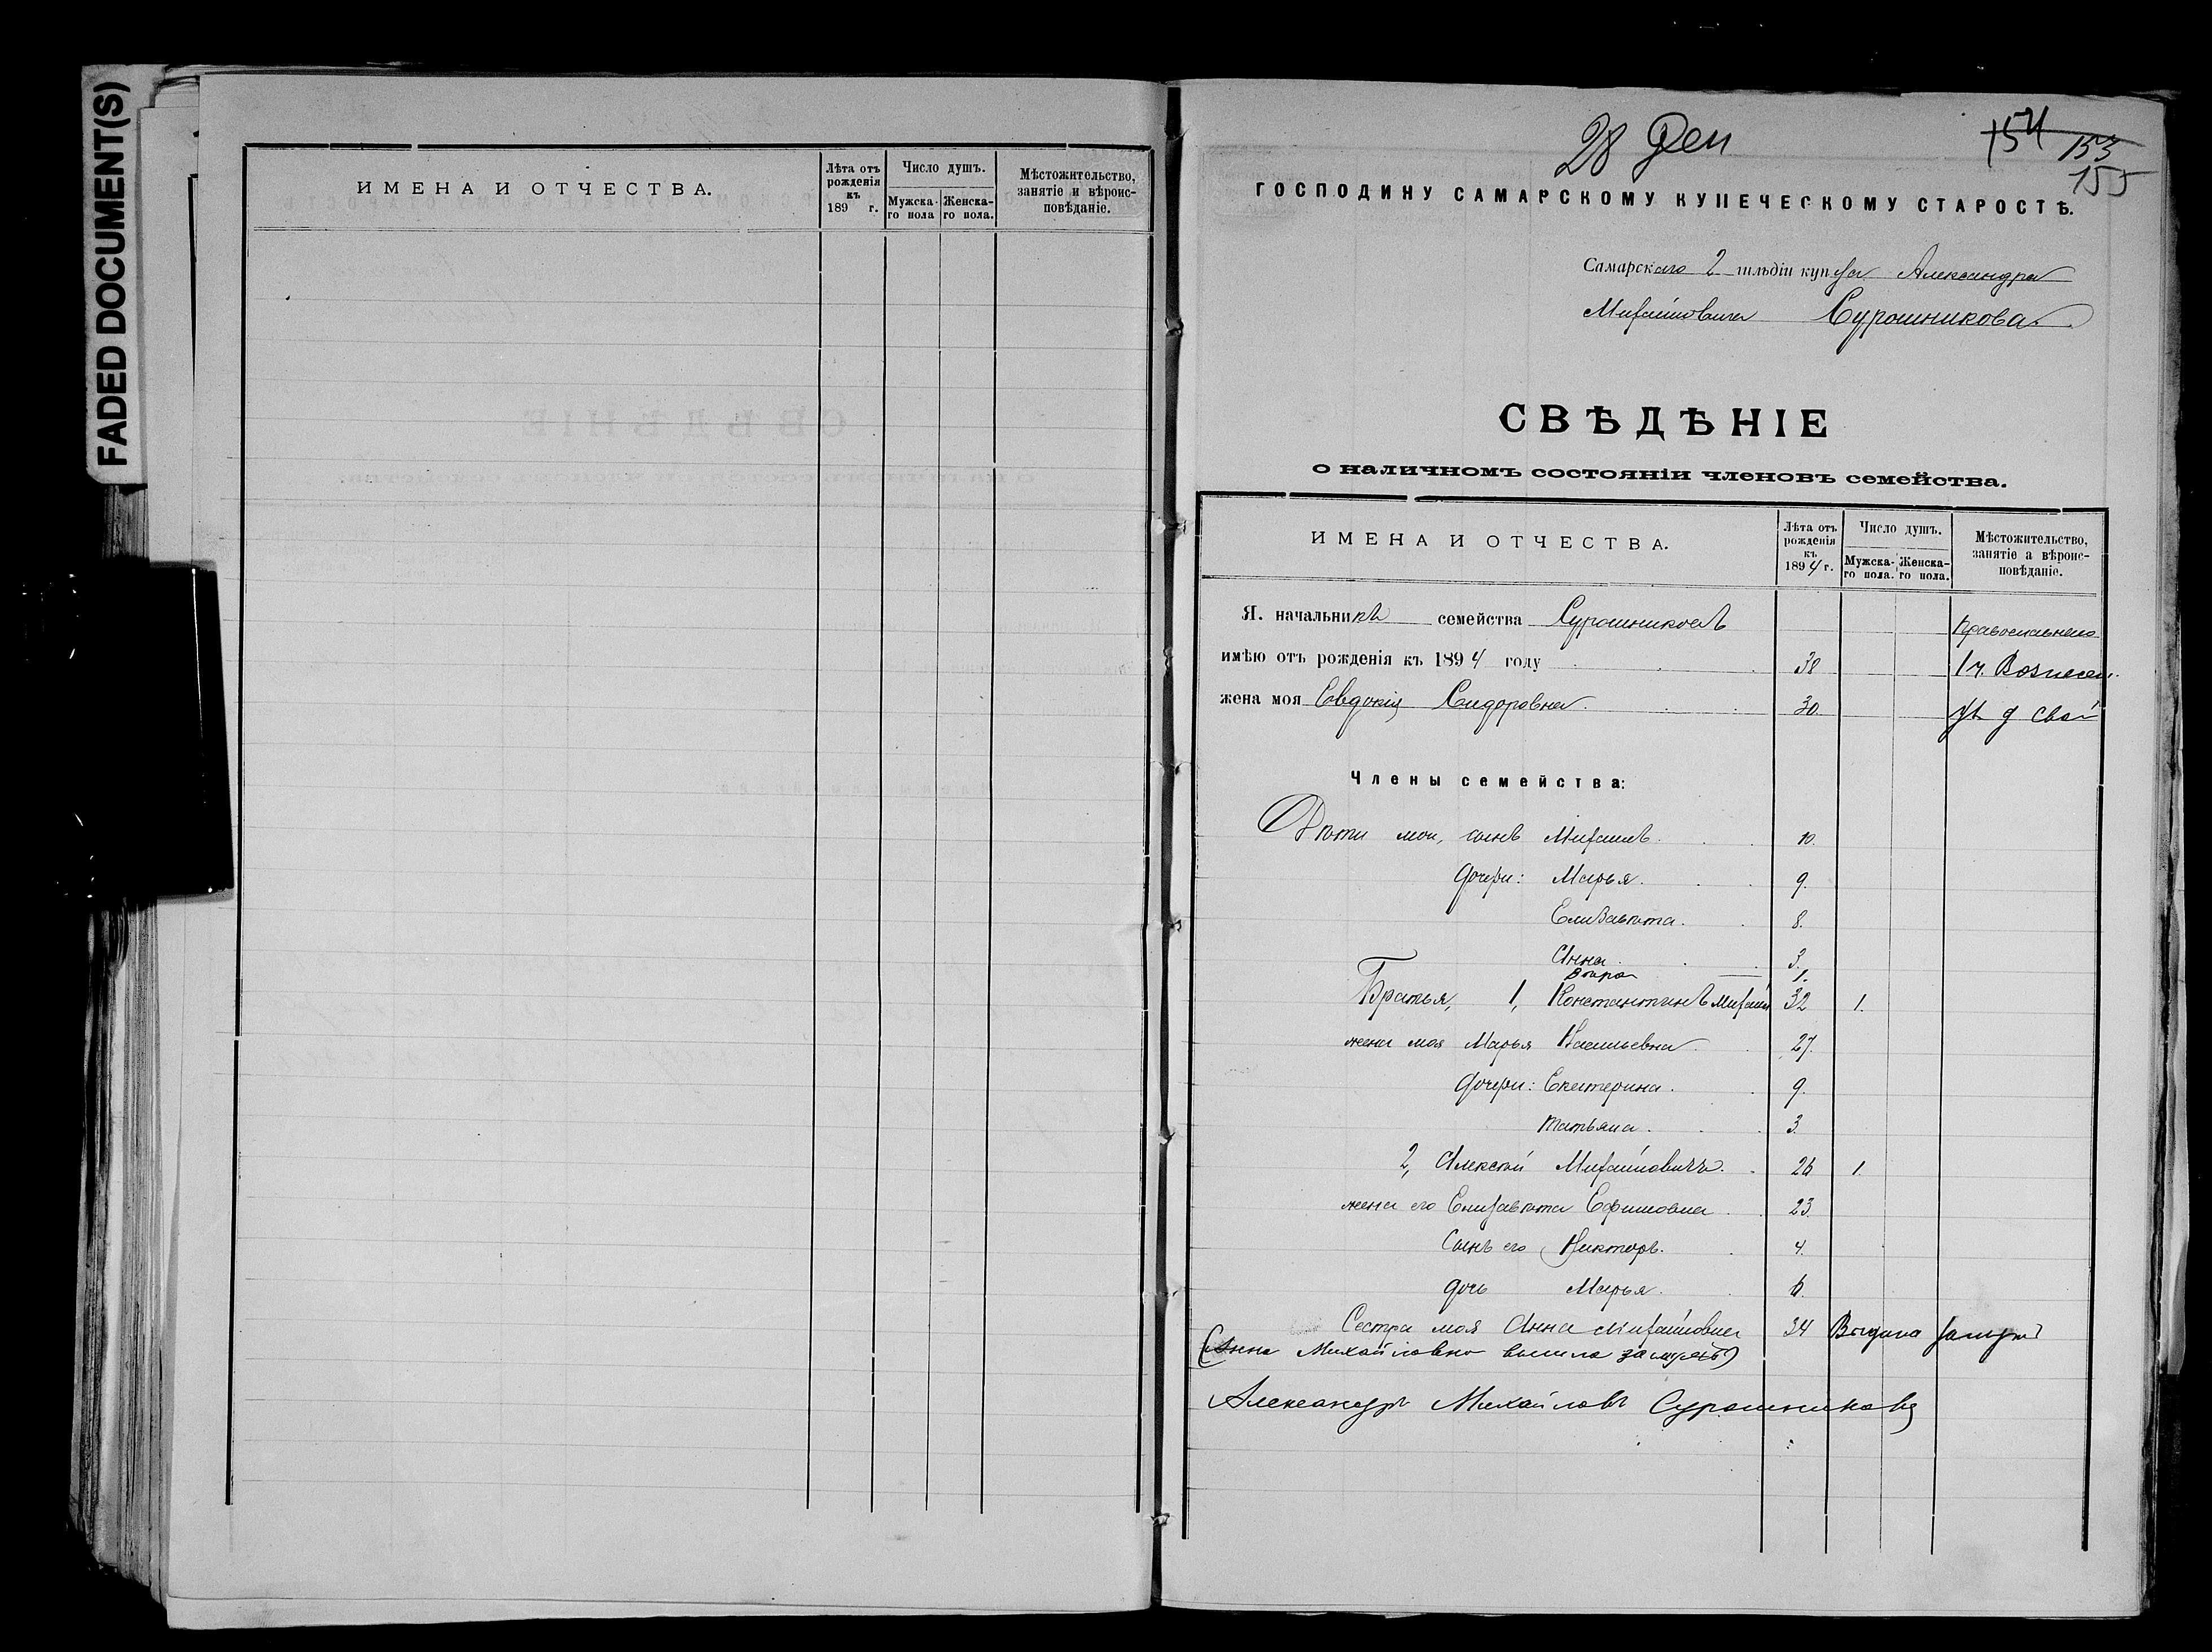 FADED DOCUMENT(S)
ИМЕНА И ОТЧЕСТВА.
Лѣта отъ рожденія къ 189 г.
Число душъ.
Мужска-го пола
Женска-го пола.
Мѣстожительство, занятіе и вѣроис-повѣданіе.
28 Дек
154
153
155
ГОСПОДИНУ САМАРСКОМУ КУПЕЧЕСКОМУ СТАРОСТѢ.
Самарскаго 2 гильдіи купца Александра
Михайловича Сурошникова
СВѢДѢНІЕ
о наличномъ состояніи членовъ семейства.
ИМЕНА И ОТЧЕСТВА.
Лѣта отъ рожденія къ 1894 г.
Число душъ.
Мужска-го пола.
Женска-го пола.
Мѣстожительство, занятіе а вѣроис-повѣданіе.
Я. начальникъ семейства Сурошниковъ Православнаго
имѣю отъ рожденія къ 1894 году 38 1 ч. Вознесен.
жена моя Евдокія Сидоровна 30
Члены семейства:
Дѣти мои, сынъ Михаилъ. 10.
дочери: Марья. 9.
Елизавѣта. 8.
Анна. 3.
Вѣра 1.
Братья, 1, Константинъ Михайл 32 1.
жена моя Марья Васильевна 27.
дочери: Екатерина. 9.
Татьяна. 3.
2, Алексѣй Михайловичъ. 26 1.
жена его Елизавѣта Ефимовна 23.
Сынъ его Викторъ. 4.
дочь Марья. 6.
Сестра моя Анна Михайловна 34 Выдана замужъ
(Анна Михайловна вышла замужъ)
Александръ Михайловъ Сурошниковъ